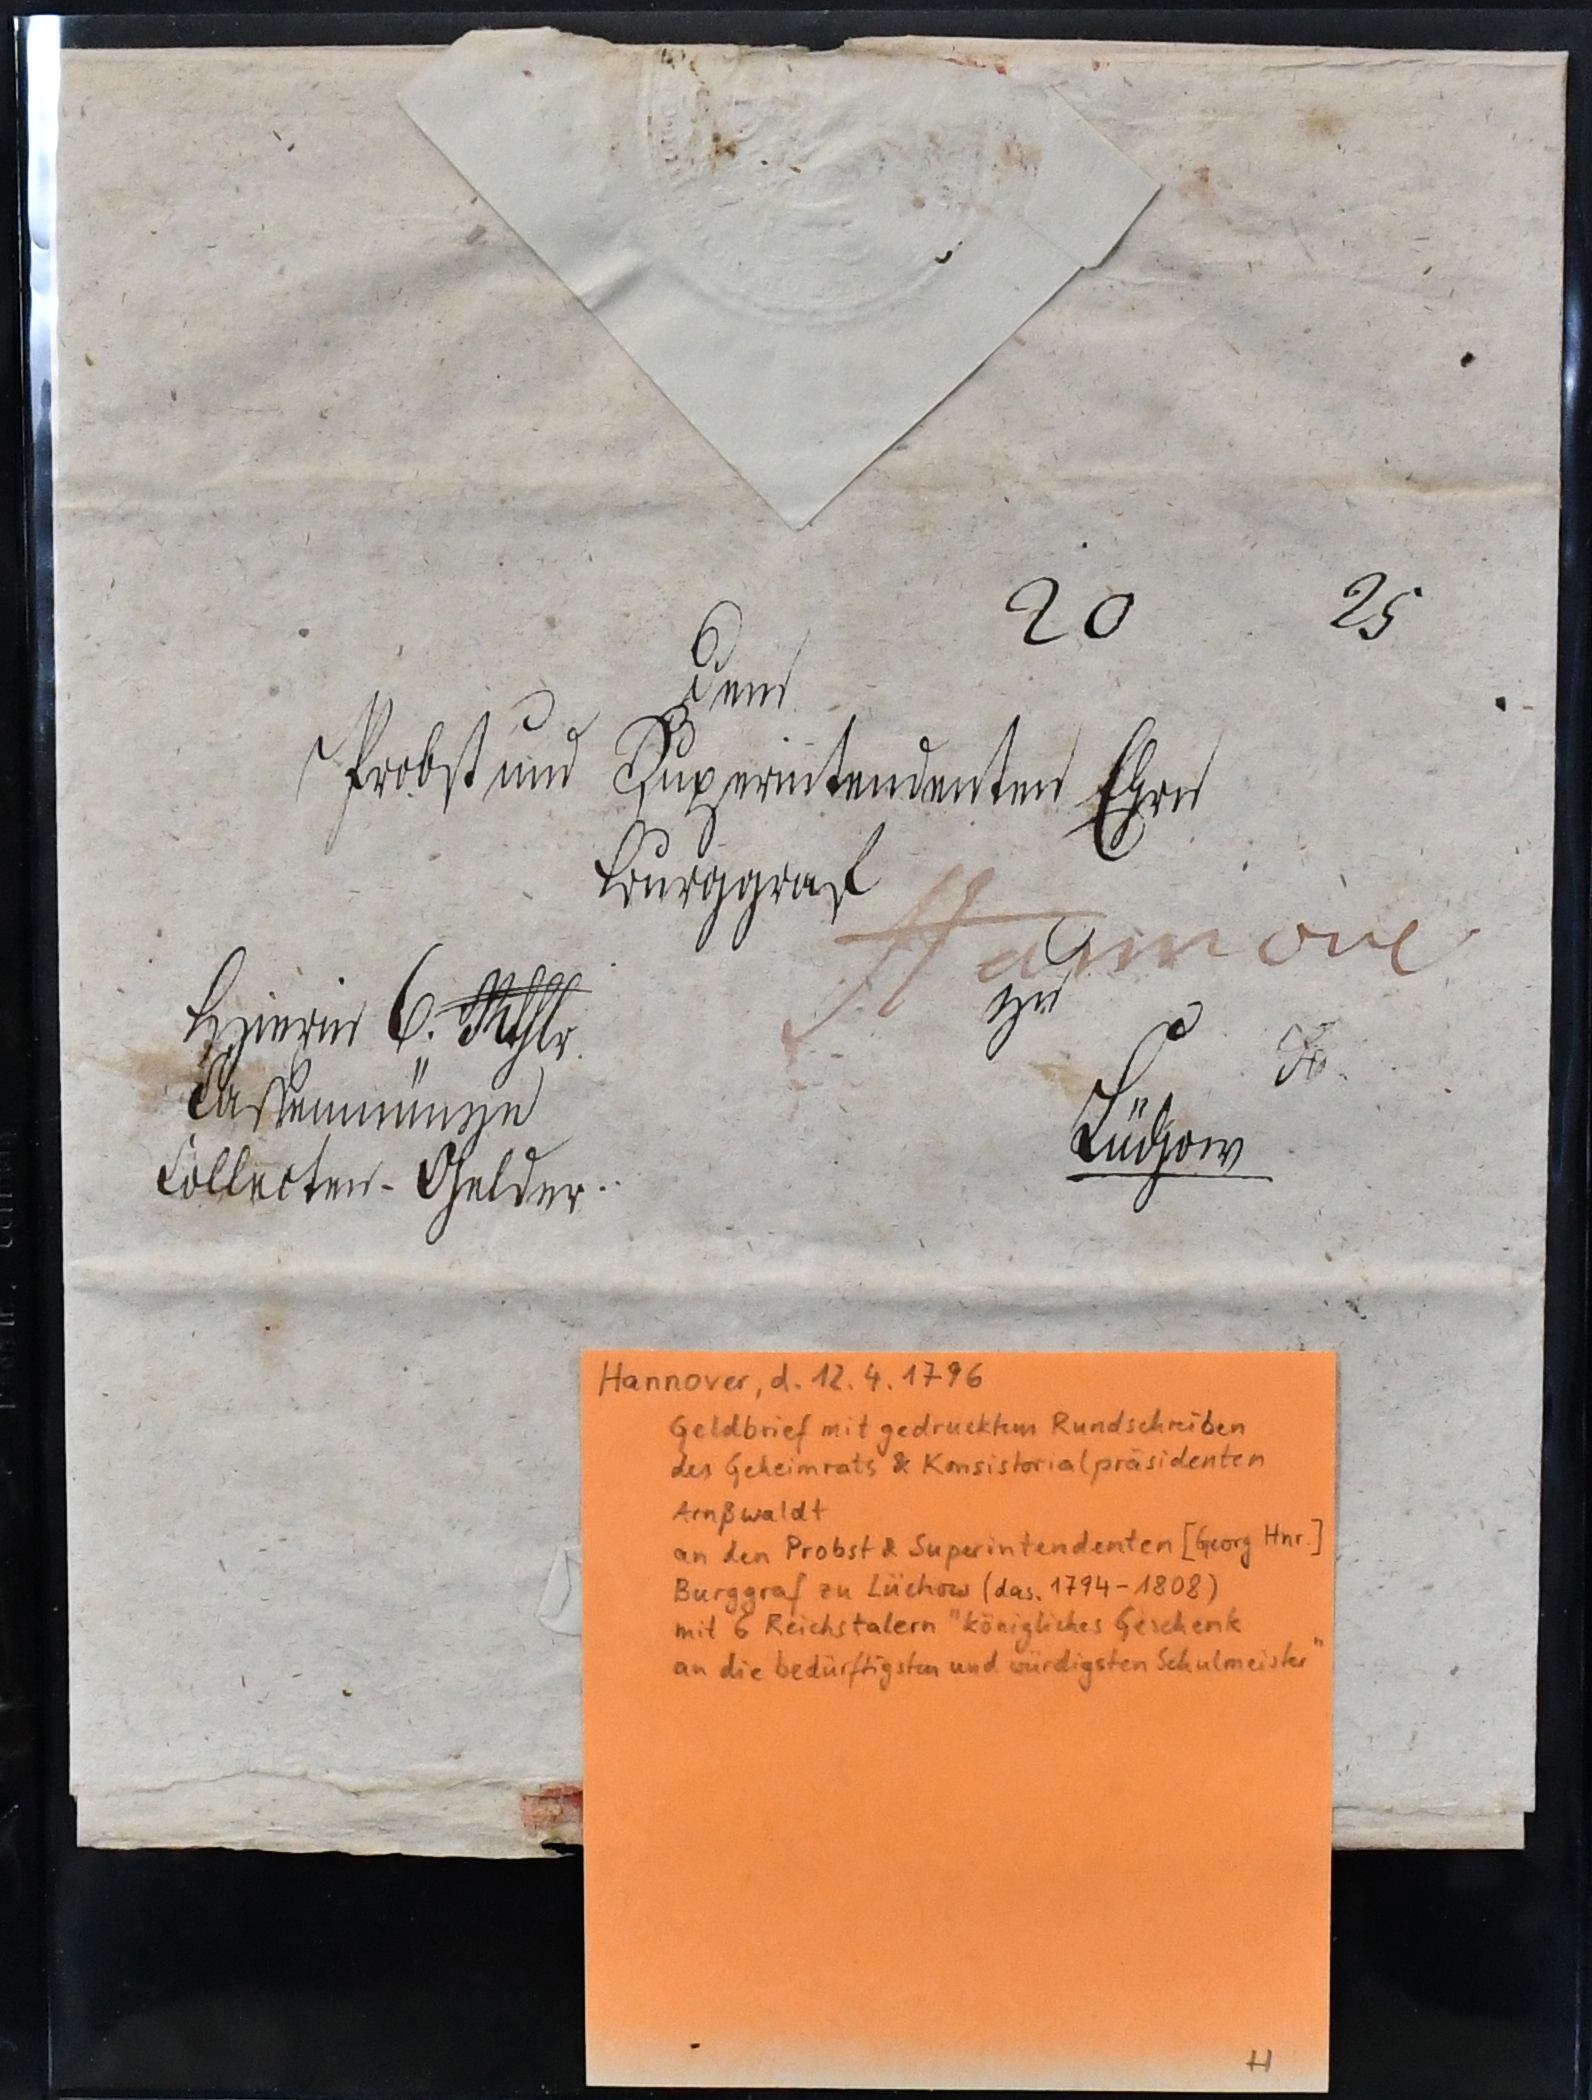 20 25
Dem
Probst und Superintendenten Ehrn
Burggraf
Hannove
zu
Hierin 6. Rthlr.
Cassenmünze
Lüchow
Collecten-Gelder.
Hannover, d. 12.4.1796
Geldbrief mit gedrucktem Rundschreiben
des Geheimrats & Konsistorialpräsidenten
Arnßwaldt
an den Probst & Superintendenten [Georg Hnr.]
Burggraf zu Lüchow (das. 1794-1808)
mit 6 Reichstalern "königliches Geschenk
an die bedürftigsten und würdigsten Schulmeister"
H